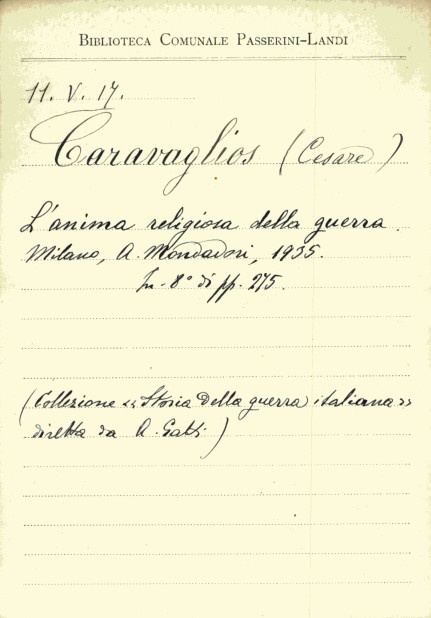 BIBLIOTECA COMUNALE PASSERINI-LANDI
11. V. 17.
Caravaglios (Cesare)
L'anima religiosa della guerra.
Milano, A. Mondadori, 1935.
In-8° di pp. 275.
(Collezione «Storia della guerra italiana»
diretta da A. Gatti)